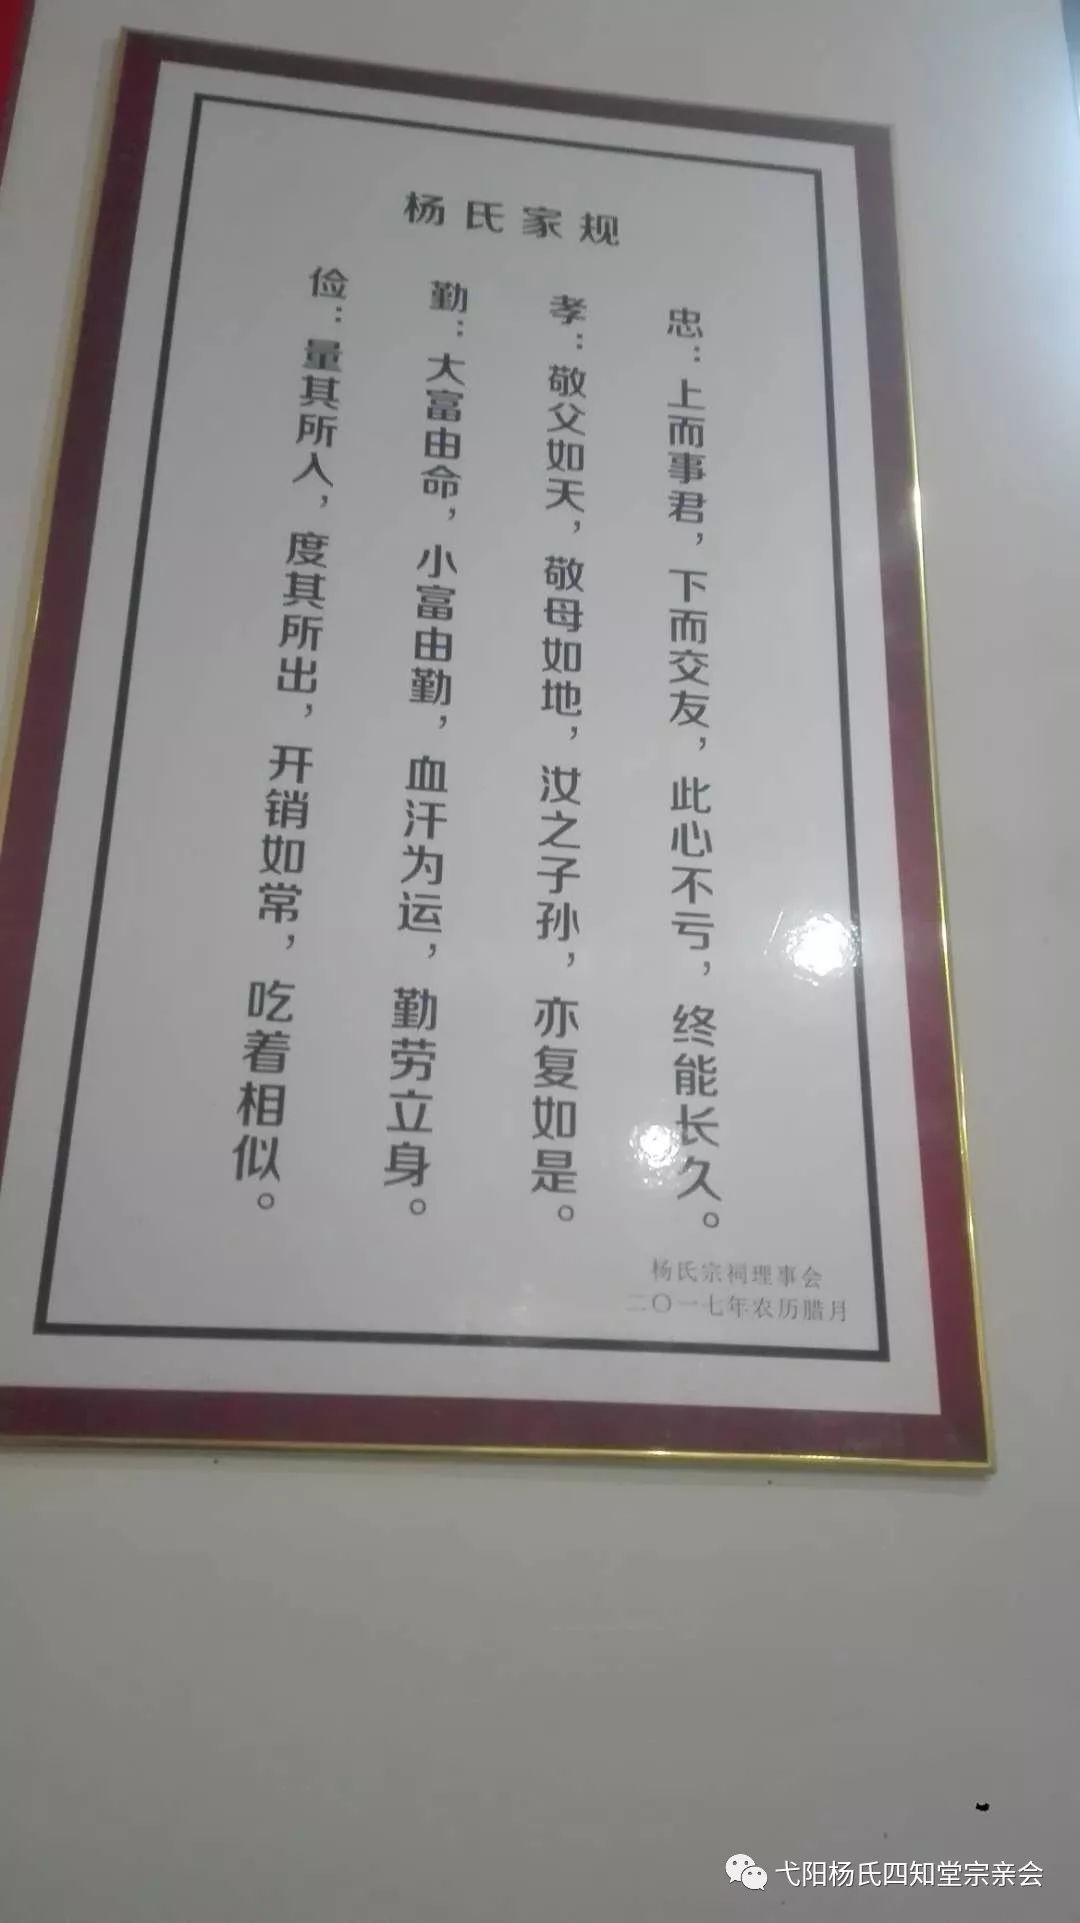 杨氏家规
忠：上而事君，下而交友，此心不亏，终能长久。
孝：敬父如天，敬母如地，汝之子孙，亦复如是。
勤：大富由命，小富由勤，血汗为运，勤劳立身。
俭：量其所入，度其所出，开销如常，吃着相似。
杨氏宗祠理事会
二〇一七年农历腊月
弋阳杨氏四知堂宗亲会